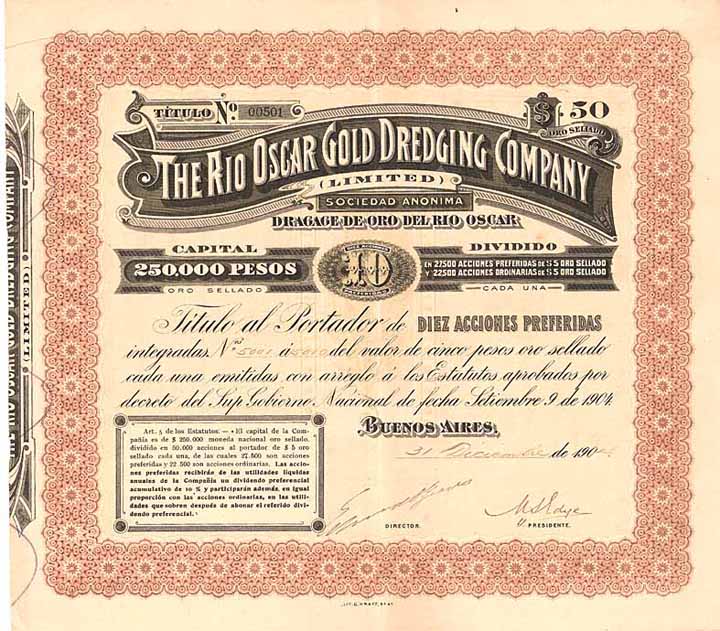 TÍTULO Nº 00501
$ 50
ORO SELLADO
THE RIO OSCAR GOLD DREDGING COMPANY
(LIMITED)
SOCIEDAD ANONIMA
DRAGAGE DE ORO DEL RIO OSCAR
CAPITAL
250,000 PESOS
ORO SELLADO
DIEZ ACCIONES
10
PREFERIDAS
DIVIDIDO
EN 27,500 ACCIONES PREFERIDAS DE $ 5 ORO SELLADO
Y 22,500 ACCIONES ORDINARIAS DE $ 5 ORO SELLADO
CADA UNA
Título al Portador de DIEZ ACCIONES PREFERIDAS
integradas, Nos 5001 á 5010 del valor de cinco pesos oro sellado
cada una emitidas con arreglo á los Estatutos aprobados por
decreto del Sup. Gobierno Nacional de fecha Setiembre 9 de 1904.
BUENOS AIRES,
31 Diciembre de 190
Art. 5 de los Estatutos. — El capital de la Com-
pañia es de $ 250.000 moneda nacional oro sellado,
dividido en 50.000 acciones al portador de $ 5 oro
sellado cada una, de las cuales 27.500 son acciones
preferidas y 22.500 son acciones ordinarias. Las accio-
nes preferidas recibirán de las utilidades liquidas
anuales de la Compañia un dividendo preferencial
acumulativo de 10 % y participarán además, en igual
proporción con las acciones ordinarias, en las utilida-
des que sobren después de abonar el referido divi-
dendo preferencial.
DIRECTOR.
V. PRESIDENTE.
THE RIO OSCAR GOLD DREDGING COMPANY
(LIMITED)